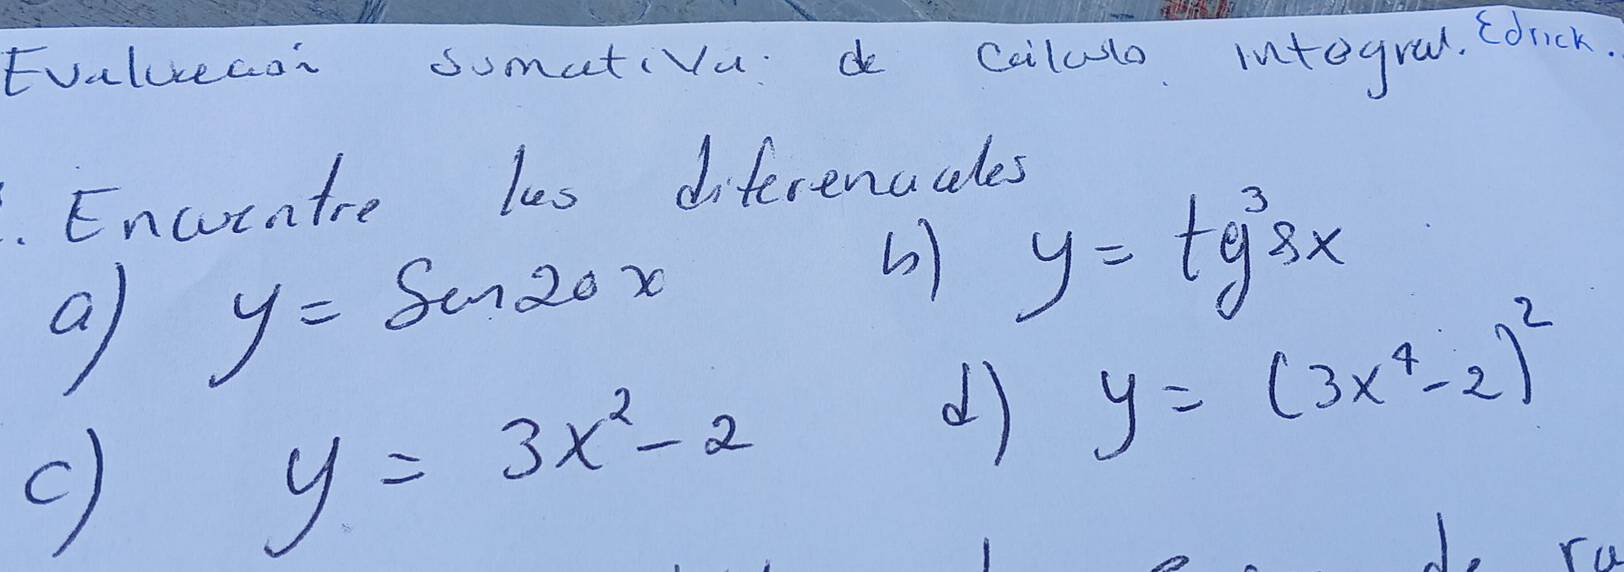 Evaluación sumativa de Cálculo integral. Edrick.
. Encuentre las diferenciales
a) y = Sen20x b) y = tg³8x
c) y = 3x² - 2 d) y = (3x⁴ - 2)²
de